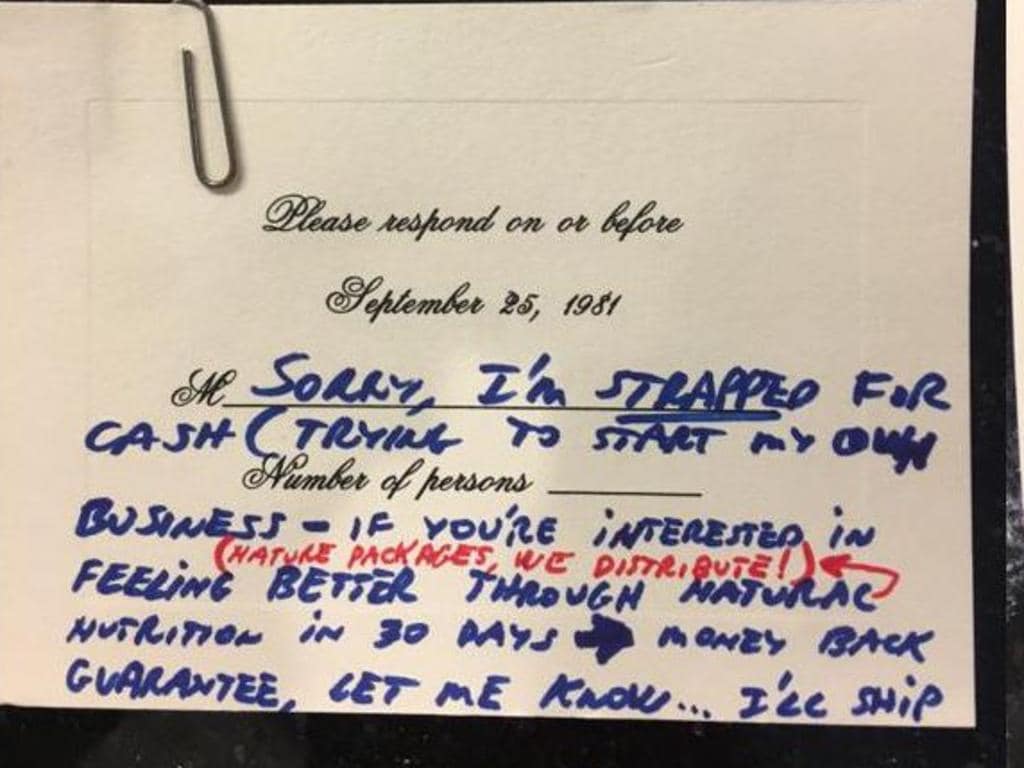 Please respond on or before
September 25, 1981
M SORRY, I'm STRAPPED FOR
CASH (TRYING TO START MY OWN
Number of persons
BUSINESS - IF YOU'RE INTERESTED IN
(NATURE PACKAGES, WE DISTRIBUTE!)
FEELING BETTER THROUGH NATURAL
NUTRITION IN 30 DAYS → MONEY BACK
GUARANTEE, LET ME KNOW... I'LL SHIP